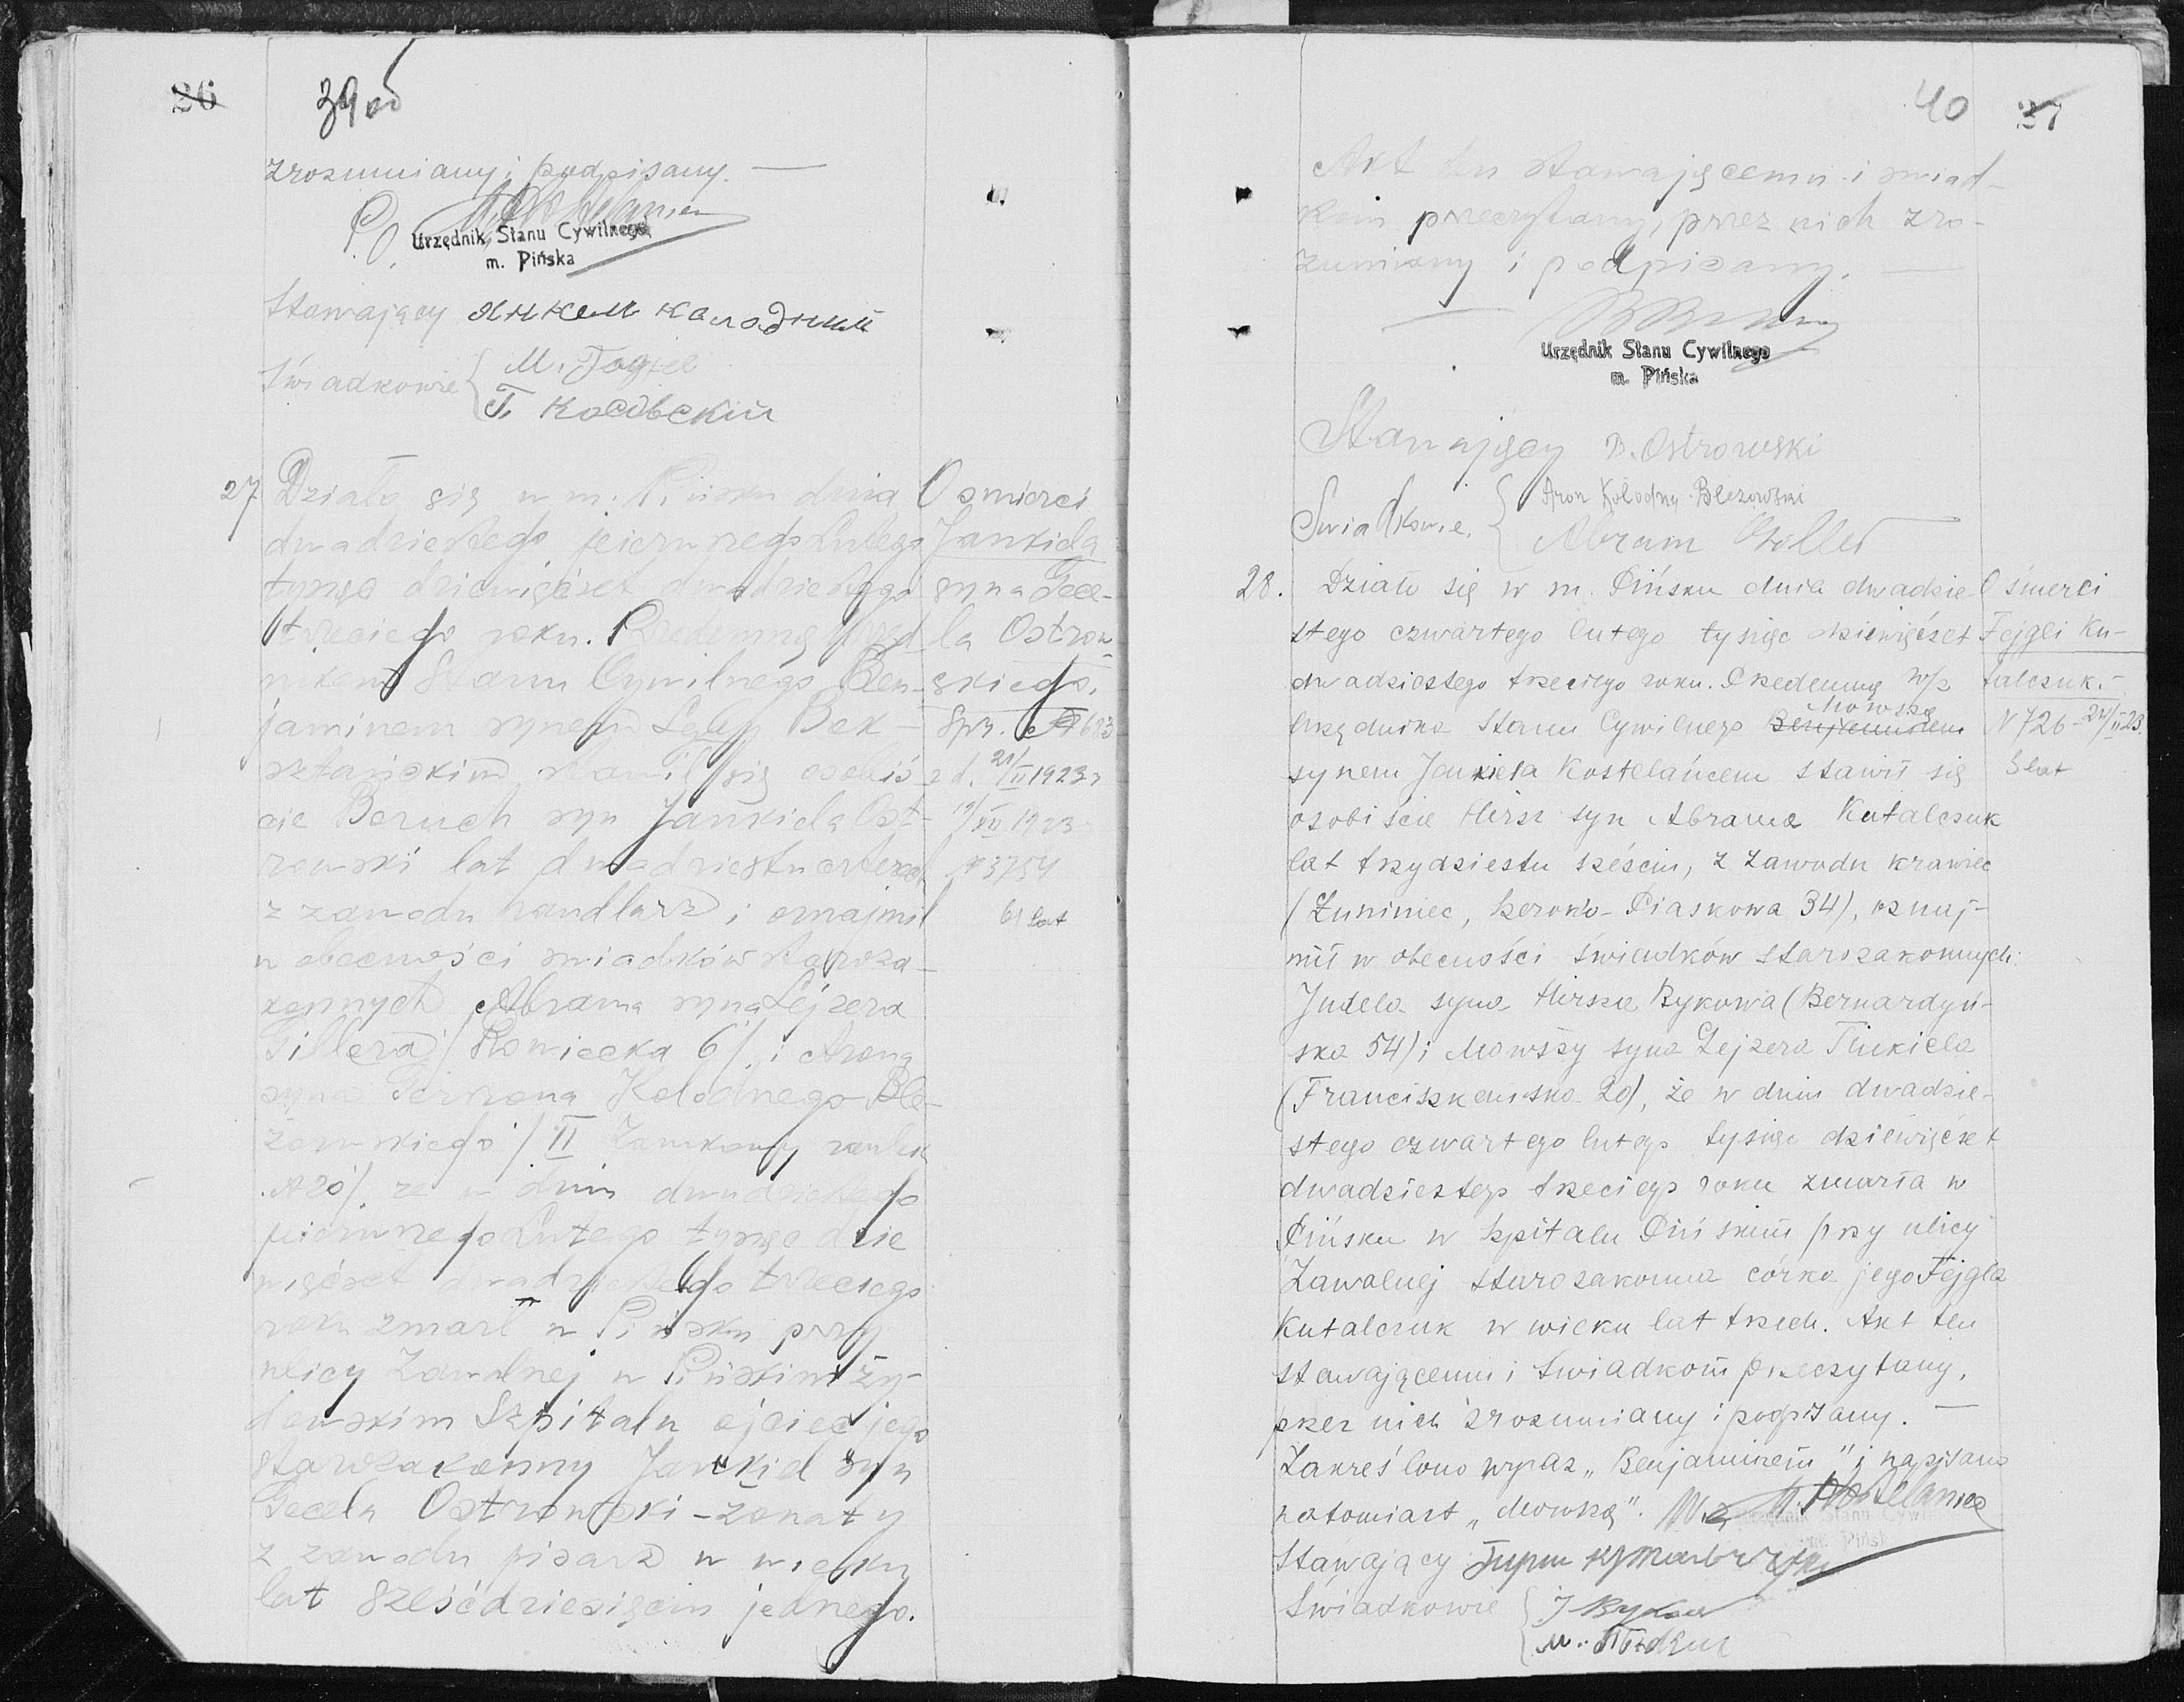 26
39 об
zrozumiany i podpisany. —
P.O.
Urzędnik Stanu Cywilnego
m. Pińska
Stawający Янкел Колодный
Świadkowie M. Fogiel
27. Działo się w m. Pińsku dnia
dwadziestego pierwszego Lutego
tysiąc dziewięćset dwudziestego
trzeciego roku. Przedemną Urzęd
nikiem Stanu Cywilnego Ben-
jaminem synem
sztańskim stawił się osobiś
cie Boruch syn Jankiela Ost-
rowski lat dwadziestu czterech
z zawodu handlarz i oznajmił
w obecności świadków staroza-
konnych Abrama syna Lejzera
Gillera / Rowiecka 6/ i Arona
syna Gerszona Kolodnego-Ble-
żowskiego / II Zamkowy zaułek
№ 20/ że w dniu dwudziestego
pierwszego Lutego tysiąc dzie
więćset dwadziestego trzeciego
roku zmarł w Pińsku przy
ulicy Zawalnej w Pińskim ży-
dowskim Szpitalu ojciec jego
starozakonny Jankiel syn
Gecela Ostrowski - żonaty
z zawodu pisarz w wieku
lat sześćdziesięciu jednego.
O śmierci
Jankiela
syna Gece-
la Ostrow-
skiego.
Spr. № 683
z d. 21/II 1923 r
19/XII 1923
№ 3754
61 lat
40 37
Akt ten stawającemu i świad-
kom przeczytany, przez nich zro-
zumiany i podpisany. —
Urzędnik Stanu Cywilnego
m. Pińska
Stawający B. Ostrowski
Świadkowie. Aron Kołodny-Bleżowski
Abram Giller
28. Działo się w m. Pińsku dnia dwadzie
stego czwartego lutego tysiąc dziewięćset
dwadziestego trzeciego roku. Przedemną w/z
Urzędnika Stanu Cywilnego Benjaminem Mowszą
synem Jankiela Kostelańcem stawił się
osobiście Hirsz syn Abrama Kutalczuk
lat trzydziestu sześciu, z zawodu krawiec
(Łuniniec, Szeroko-Piaskowa 34), oznaj-
mił w obecności świadków starozakonnych:
Judela syna Hirsza Bykowa (Bernardyń-
ska 54) i Mowszy syna Lejzera Finkiela
(Franciszkańska 20), że w dniu dwadzie-
stego czwartego lutego tysiąc dziewięćset
dwadziestego trzeciego roku zmarła w
Pińsku w Szpitalu Pińskim przy ulicy
Zawalnej starozakonna córka jego Fejgla
Kutalczuk w wieku lat trzech. Akt ten
stawającemu i świadkom przeczytany,
przez nich zrozumiany i podpisany. —
Zakreślono wyraz „Benjaminem" i napisano
natomiast „Mowszą". W.z. M. Kostelaniec
Urzędnik Stanu Cywilnego
m. Pińska
Stawający
Świadkowie J Bykow
O śmierci
Fejgli Ku-
talczuk.-
N 726 - 24/II-23.
3 lat